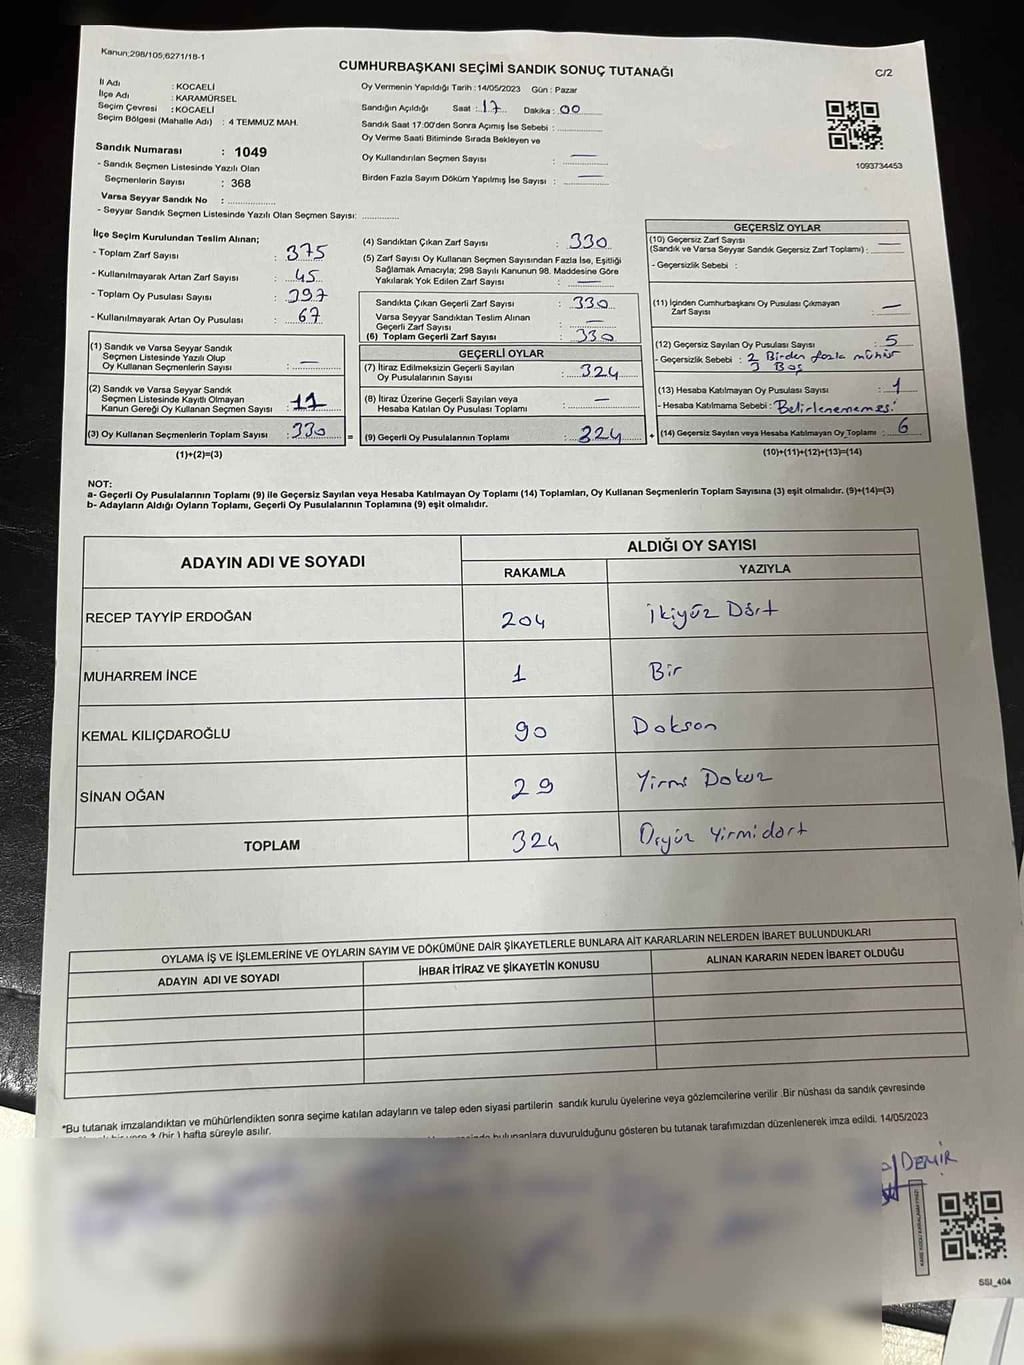 Kanun;298/105;6271/18-1
CUMHURBAŞKANI SEÇİMİ SANDIK SONUÇ TUTANAĞI
C/2
İl Adı : KOCAELİ
İlçe Adı : KARAMÜRSEL
Seçim Çevresi : KOCAELİ
Seçim Bölgesi (Mahalle Adı) : 4 TEMMUZ MAH.
Sandık Numarası : 1049
- Sandık Seçmen Listesinde Yazılı Olan
Seçmenlerin Sayısı : 368
Varsa Seyyar Sandık No :
- Seyyar Sandık Seçmen Listesinde Yazılı Olan Seçmen Sayısı:
Oy Vermenin Yapıldığı Tarih : 14/05/2023 Gün : Pazar
Sandığın Açıldığı Saat : 17 Dakika : 00
Sandık Saat 17:00'den Sonra Açımış İse Sebebi :
Oy Verme Saati Bitiminde Sırada Bekleyen ve
Oy Kullandırılan Seçmen Sayısı : —
Birden Fazla Sayım Döküm Yapılmış İse Sayısı : —
1093734453
İlçe Seçim Kurulundan Teslim Alınan;
- Toplam Zarf Sayısı : 375
- Kullanılmayarak Artan Zarf Sayısı : 45
- Toplam Oy Pusulası Sayısı : 397
- Kullanılmayarak Artan Oy Pusulası : 67
(1) Sandık ve Varsa Seyyar Sandık
Seçmen Listesinde Yazılı Olup
Oy Kullanan Seçmenlerin Sayısı : —
(2) Sandık ve Varsa Seyyar Sandık
Seçmen Listesinde Kayıtlı Olmayan
Kanun Gereği Oy Kullanan Seçmen Sayısı : 11
(3) Oy Kullanan Seçmenlerin Toplam Sayısı : 330
(1)+(2)=(3)
(4) Sandıktan Çıkan Zarf Sayısı : 330
(5) Zarf Sayısı Oy Kullanan Seçmen Sayısından Fazla İse, Eşitliği
Sağlamak Amacıyla; 298 Sayılı Kanunun 98. Maddesine Göre
Yakılarak Yok Edilen Zarf Sayısı : —
Sandıkta Çıkan Geçerli Zarf Sayısı : 330
Varsa Seyyar Sandıktan Teslim Alınan
Geçerli Zarf Sayısı : —
(6) Toplam Geçerli Zarf Sayısı : 330
GEÇERLİ OYLAR
(7) İtiraz Edilmeksizin Geçerli Sayılan
Oy Pusulalarının Sayısı : 324
(8) İtiraz Üzerine Geçerli Sayılan veya
Hesaba Katılan Oy Pusulası Toplamı : —
= (9) Geçerli Oy Pusulalarının Toplamı : 324 +
GEÇERSİZ OYLAR
(10) Geçersiz Zarf Sayısı
(Sandık ve Varsa Seyyar Sandık Geçersiz Zarf Toplamı) : —
- Geçersizlik Sebebi :
(11) İçinden Cumhurbaşkanı Oy Pusulası Çıkmayan
Zarf Sayısı : —
(12) Geçersiz Sayılan Oy Pusulası Sayısı : 5
- Geçersizlik Sebebi : 2 Birden fazla mühür
3 Boş
(13) Hesaba Katılmayan Oy Pusulası Sayısı : 1
- Hesaba Katılmama Sebebi : Belirlenememesi
(14) Geçersiz Sayılan veya Hesaba Katılmayan Oy Toplamı : 6
(10)+(11)+(12)+(13)=(14)
NOT:
a- Geçerli Oy Pusulalarının Toplamı (9) ile Geçersiz Sayılan veya Hesaba Katılmayan Oy Toplamı (14) Toplamları, Oy Kullanan Seçmenlerin Toplam Sayısına (3) eşit olmalıdır. (9)+(14)=(3)
b- Adayların Aldığı Oyların Toplamı, Geçerli Oy Pusulalarının Toplamına (9) eşit olmalıdır.
ADAYIN ADI VE SOYADI
ALDIĞI OY SAYISI
RAKAMLA YAZIYLA
RECEP TAYYİP ERDOĞAN 204 İkiyüz Dört
MUHARREM İNCE 1 Bir
KEMAL KILIÇDAROĞLU 90 Doksan
SİNAN OĞAN 29 Yirmi Dokuz
TOPLAM 324 Üçyüz Yirmidört
OYLAMA İŞ VE İŞLEMLERİNE VE OYLARIN SAYIM VE DÖKÜMÜNE DAİR ŞİKAYETLERLE BUNLARA AİT KARARLARIN NELERDEN İBARET BULUNDUKLARI
ADAYIN ADI VE SOYADI İHBAR İTİRAZ VE ŞİKAYETİN KONUSU ALINAN KARARIN NEDEN İBARET OLDUĞU
*Bu tutanak imzalandıktan ve mühürlendikten sonra seçime katılan adayların ve talep eden siyasi partilerin sandık kurulu üyelerine veya gözlemcilerine verilir .Bir nüshası da sandık çevresinde
(bir) hafta süreyle asılır.
bulunanlara duyurulduğunu gösteren bu tutanak tarafımızdan düzenlenerek imza edildi. 14/05/2023
DEMİR
SSI_404